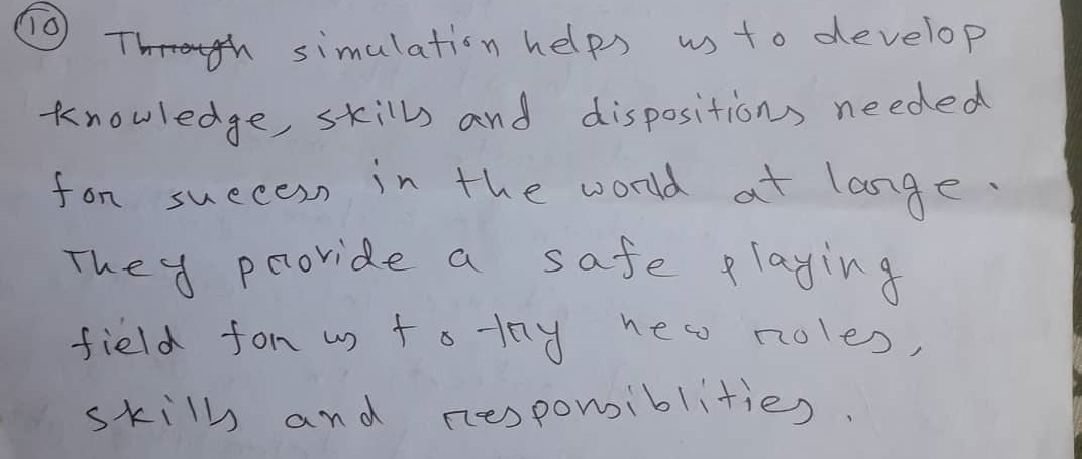 10 Through simulation helps us to develop
knowledge, skills and dispositions needed
for success in the world at large.
They provide a safe playing
field for us to try new roles,
skills and responsiblities.